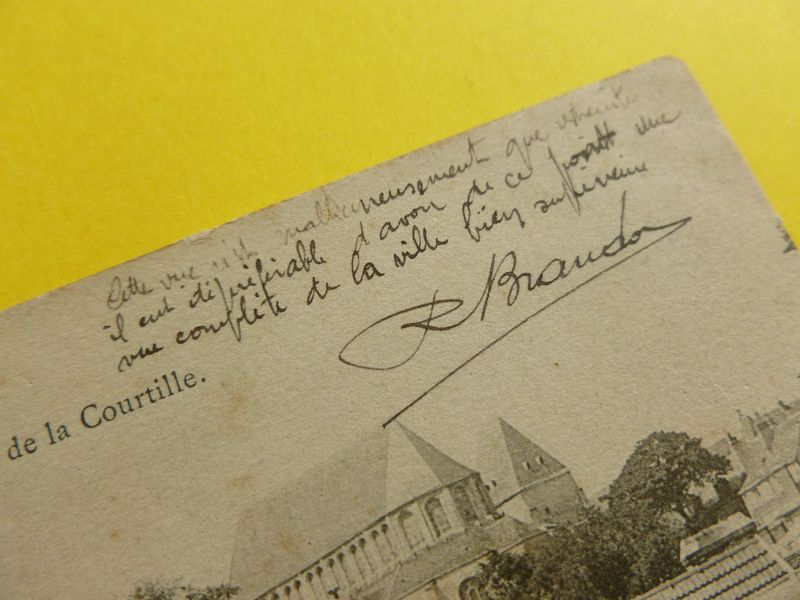 Cette vue est malheureusement que restreinte
il eut été préférable d'avoir de ce point une
vue complète de la ville bien supérieure
R Brandon
de la Courtille.